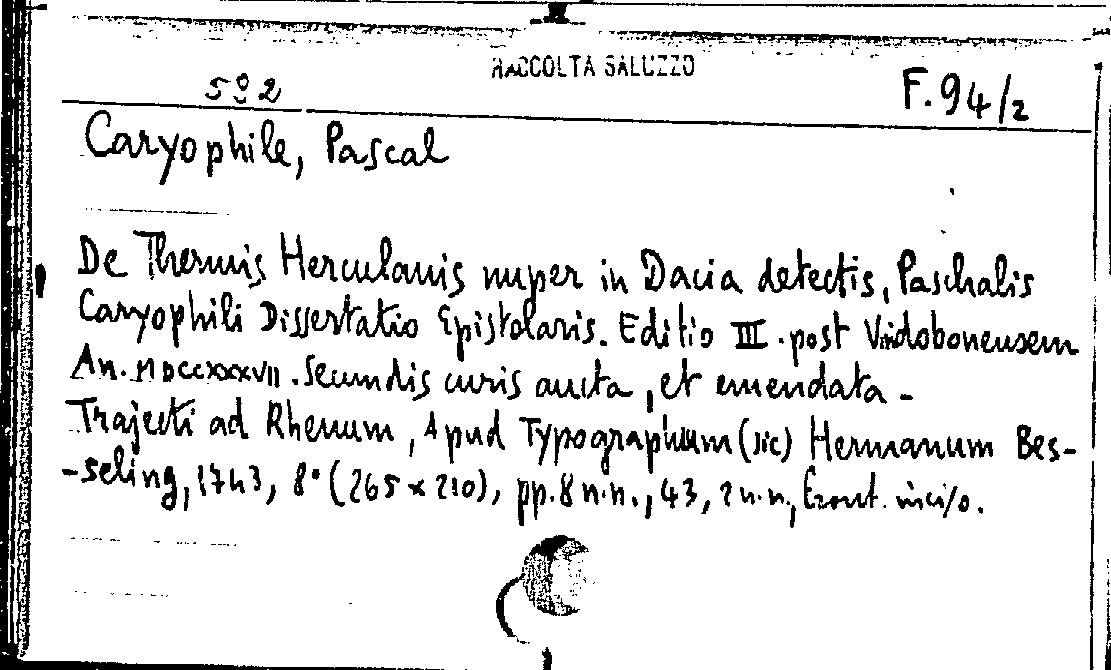 RACCOLTA SALUZZO
592
F.94/2
Caryophile, Pascal
De Thermis Herculanis nuper in Dacia detectis, Paschalis
Caryophili Dissertatio Epistolaris. Editio III. post Vindobonensem
An. MDCCXXXVII. Secundis curis aucta, et emendata -
Trajecti ad Rhenum, Apud Typographum (sic) Hermanum Bes-
-seling, 1743, 8° (265 x 210), pp. 8 n.n., 43, 2 n.n., Front. inciso.